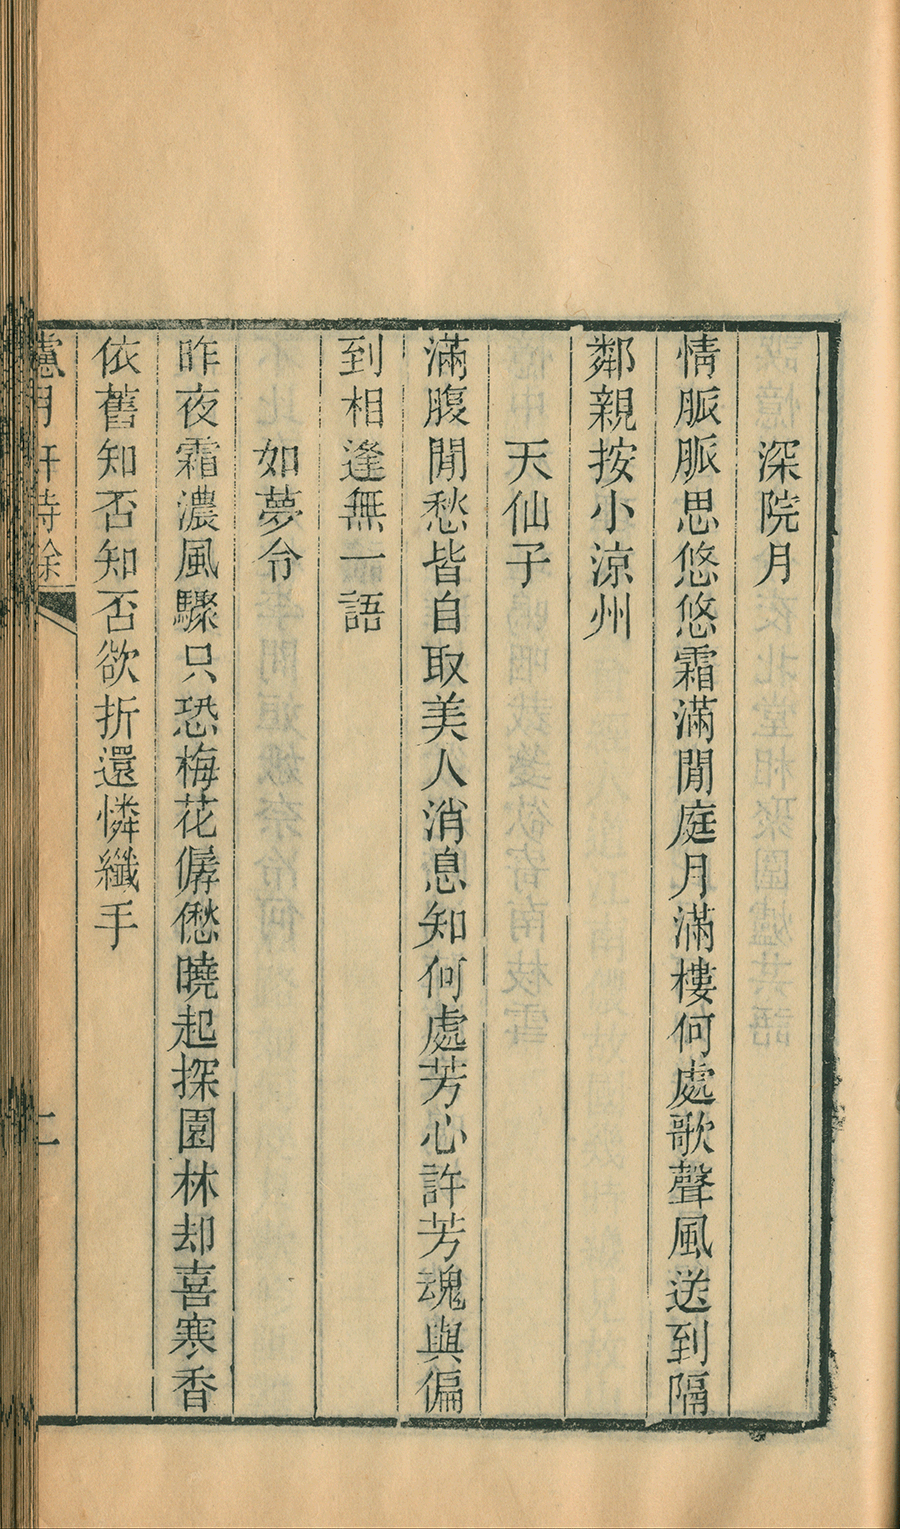 深院月
情脈脈思悠悠霜滿閒庭月滿樓何處歌聲風送到隔
鄰親按小涼州
天仙子
滿腹閒愁皆自取美人消息知何處芳心許芳魂與偏
到相逢無一語
如夢令
昨夜霜濃風驟只恐梅花僝僽曉起探園林却喜寒香
依舊知否知否欲折還憐纖手
月軒詩餘
二